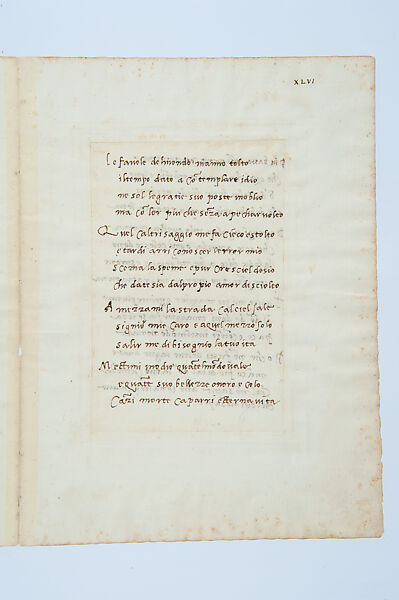 XLVI
Le favole del mondo m'anno tolto
il tempo dato a cõ templare idio
ne sol le gratie suo poste inoblio
ma cõ lor piu che senza a pechar volto
Quel c'altri saggio me fa cieco e stolto
e tardi a ri conoscer l'error mio
scema la speme e pur cresci el desio
che da te sia dal propio amor disciolto
A mezzami la strada c'al ciel sale
signiõ mie caro e a quel mezzo solo
salir me di bisognio la tuo ita
Mettimi in odio quãte 'l mõdo vale
e quãte suo bellezze onoro e colo
c'anzi morte caparri ecterna vita